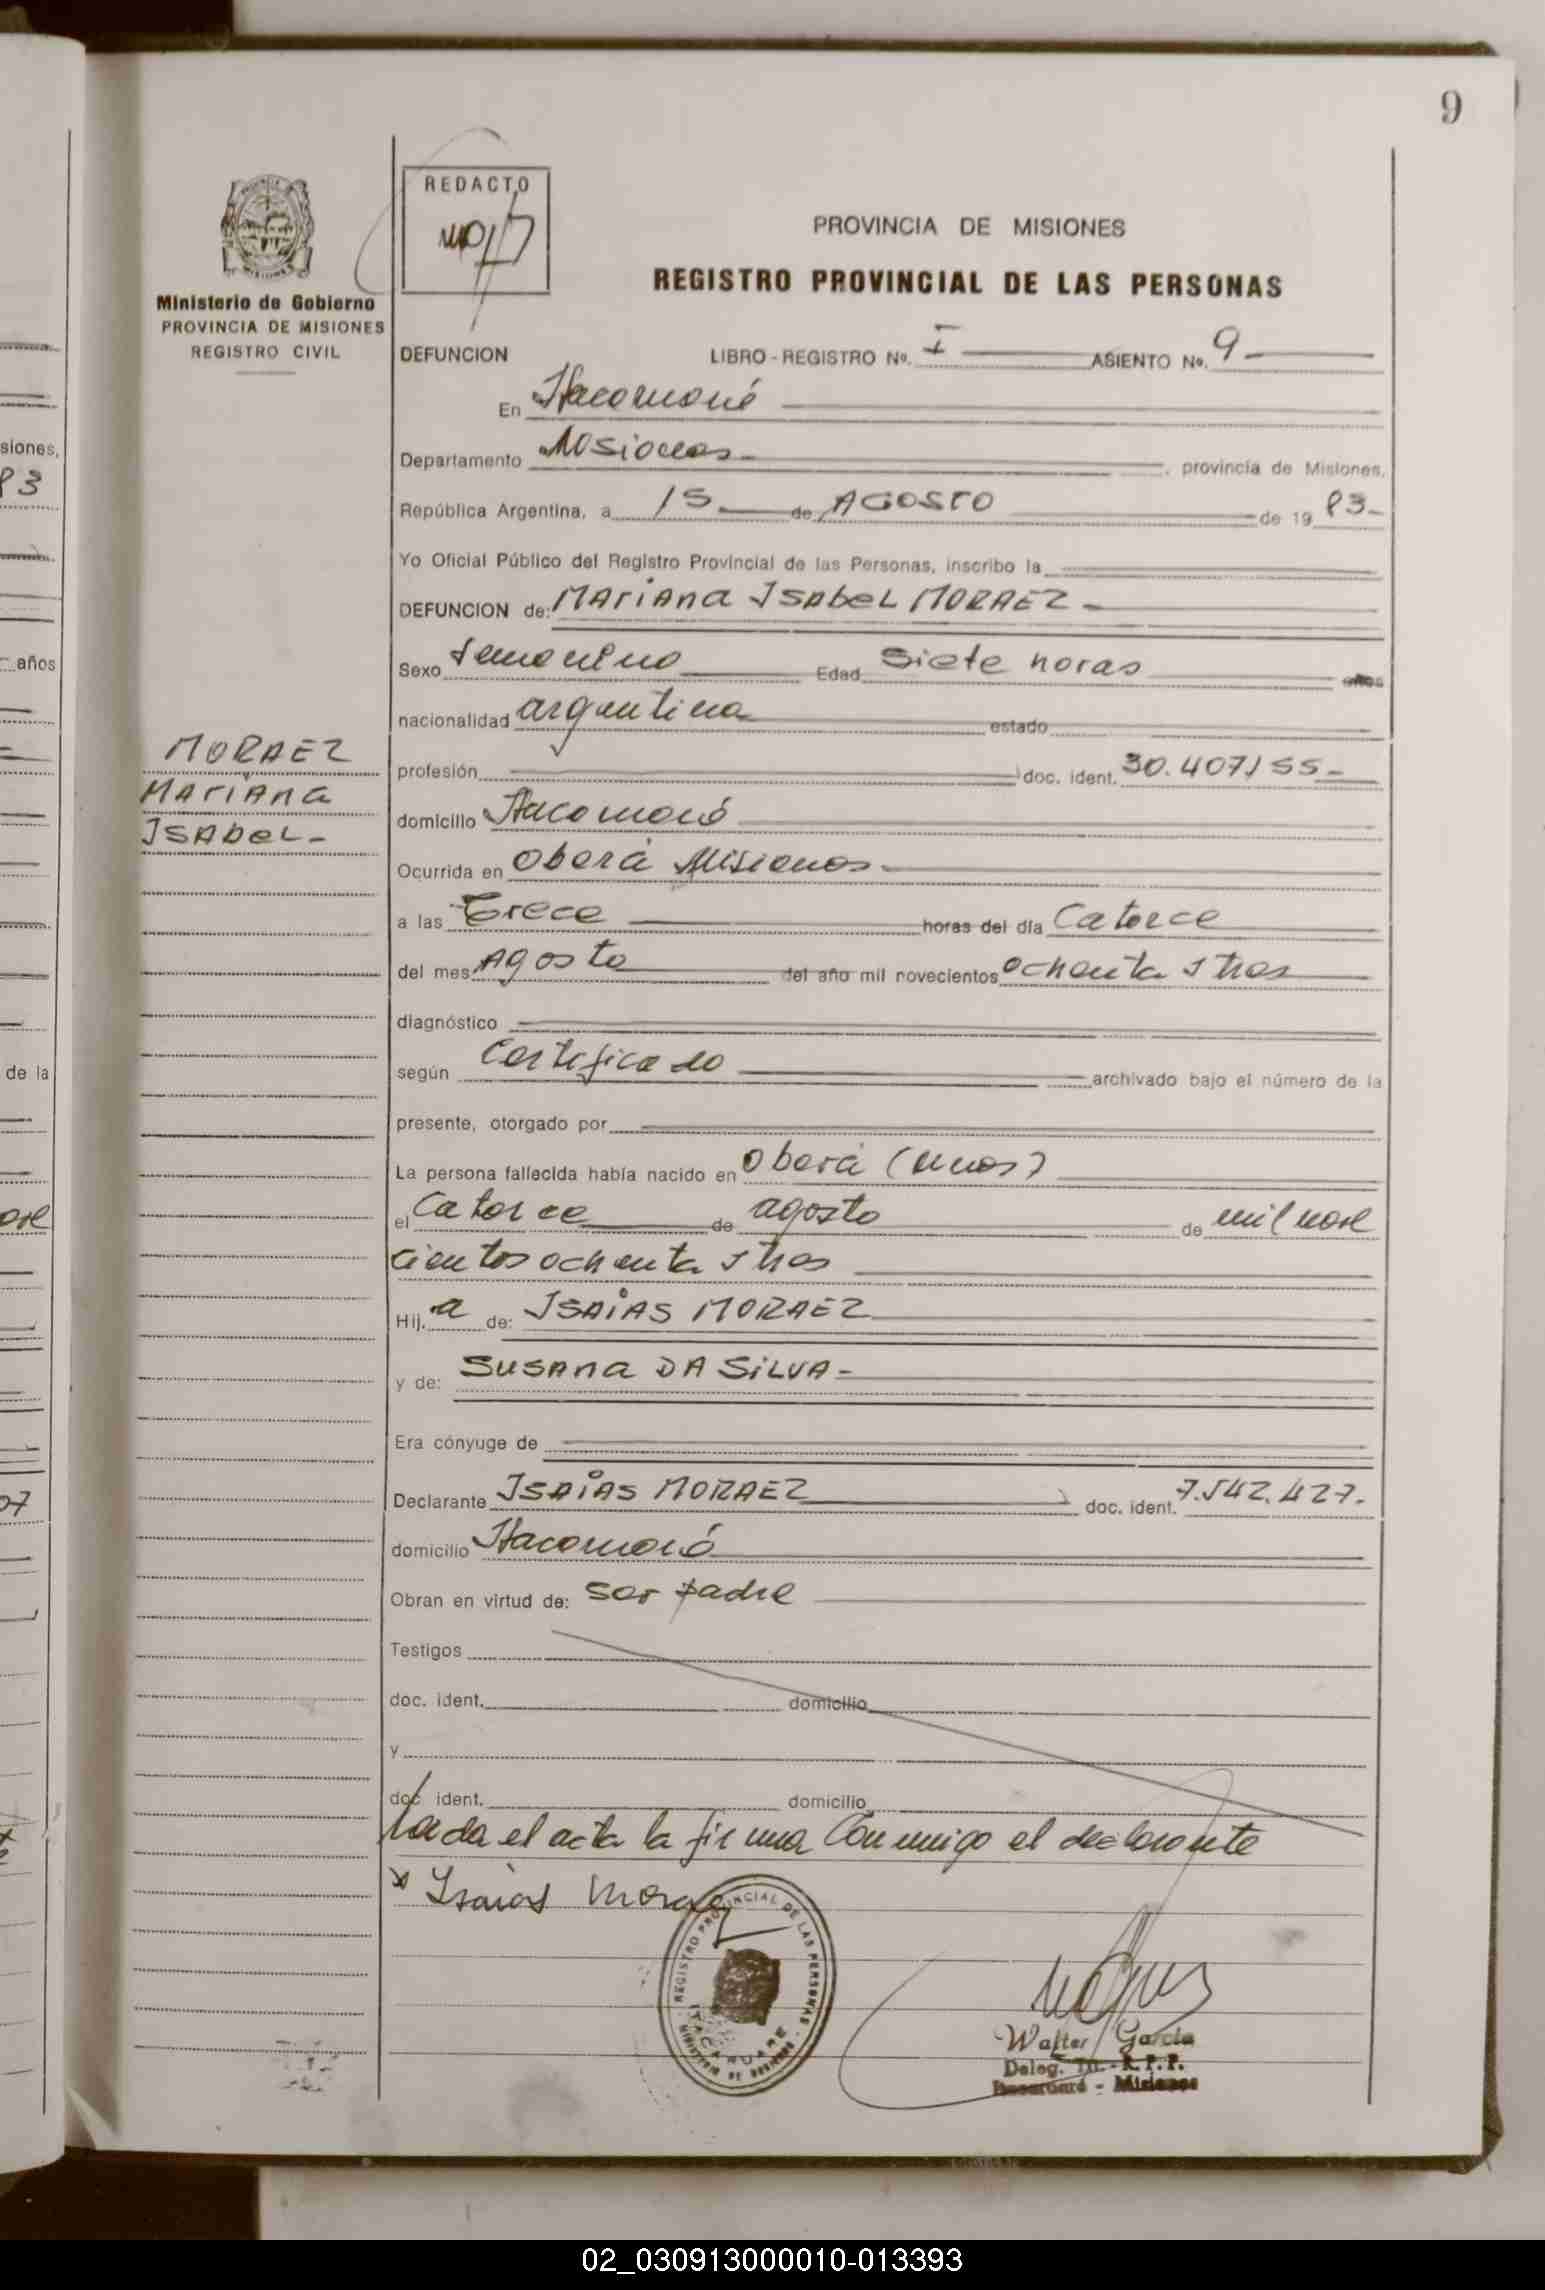 9
REDACTO
PROVINCIA DE MISIONES
REGISTRO PROVINCIAL DE LAS PERSONAS
Ministerio de Gobierno
PROVINCIA DE MISIONES
REGISTRO CIVIL
DEFUNCION LIBRO - REGISTRO No. I ASIENTO No. 9
En Itacaruaré
Departamento Misiones , provincia de Misiones,
República Argentina, a 15 de AGOSTO de 19 83
Yo Oficial Público del Registro Provincial de las Personas, inscribo la
DEFUNCION de: MAriAna ISAbeL MORAEZ
Sexo femenino Edad Siete horas años
nacionalidad argentina estado
MORAEZ
MAriAna
ISAbeL
profesión doc. ident. 30.407155
domicilio Itacaruaré
Ocurrida en Oberá Misiones
a las Trece horas del día Catorce
del mes Agosto del año mil novecientos ochenta y tres
diagnóstico
según Certificado archivado bajo el número de la
presente, otorgado por
La persona fallecida había nacido en Oberá (Mnes)
el Catorce de agosto de mil nove
cientos ochenta y tres
Hij. a de: ISAIAS MORAEZ
y de: SUSAna DA SILVA
Era cónyuge de
Declarante ISAIAS MORAEZ doc. ident. 7.542.427.
domicilio Itacaruaré
Obran en virtud de: Ser padre
Testigos
doc. ident. domicilio
y
doc. ident. domicilio
Leida el acta la firma Conmigo el declarante
x Isaias Moraez
REGISTRO PROVINCIAL DE LAS PERSONAS
ITACARUARE
MINISTERIO DE GOBIERNO
Walter García
Deleg. Tit. - R. P. P.
Itacaruaré - Misiones
siones,
83
años
de la
ove
07
02_030913000010-013393